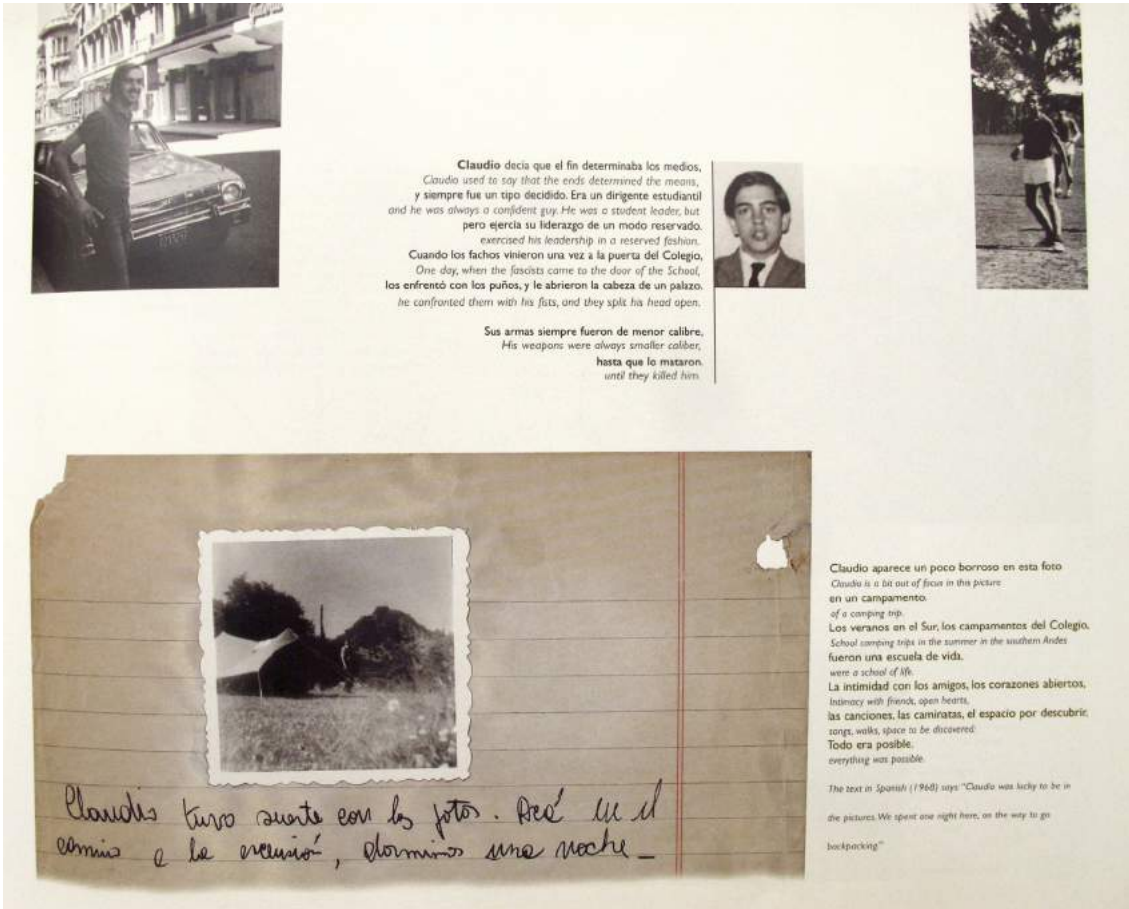 Claudio decía que el fin determinaba los medios,
Claudio used to say that the ends determined the means,
y siempre fue un tipo decidido. Era un dirigente estudiantil
and he was always a confident guy. He was a student leader, but
pero ejercía su liderazgo de un modo reservado.
exercised his leadership in a reserved fashion.
Cuando los fachos vinieron una vez a la puerta del Colegio,
One day, when the fascists came to the door of the School,
los enfrentó con los puños, y le abrieron la cabeza de un palazo.
he confronted them with his fists, and they split his head open.
Sus armas siempre fueron de menor calibre,
His weapons were always smaller caliber,
hasta que lo mataron.
until they killed him.
Claudio aparece un poco borroso en esta foto
Claudio is a bit out of focus in this picture
en un campamento.
of a camping trip.
Los veranos en el Sur, los campamentos del Colegio,
School camping trips in the summer in the southern Andes
fueron una escuela de vida.
were a school of life.
La intimidad con los amigos, los corazones abiertos,
Intimacy with friends, open hearts,
las canciones, las caminatas, el espacio por descubrir.
songs, walks, space to be discovered:
Todo era posible.
everything was possible.
The text in Spanish (1968) says "Claudio was lucky to be in
the pictures. We spent one night here, on the way to go
backpacking"
Claudio tuvo suerte con las fotos. Acá en el
camino a la excursión, dormimos una noche_